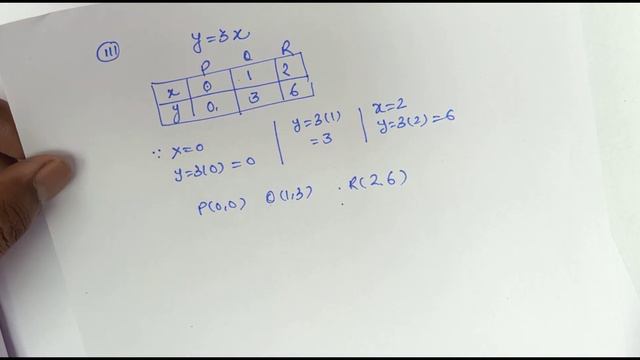 (iii) y=3x
P Q R
x 0 1 2
y 0. 3 6
∵ x=0 | y=3(1) | x=2
y=3(0)=0 | =3 | y=3(2)=6
P(0,0) Q(1,3) R(2,6)